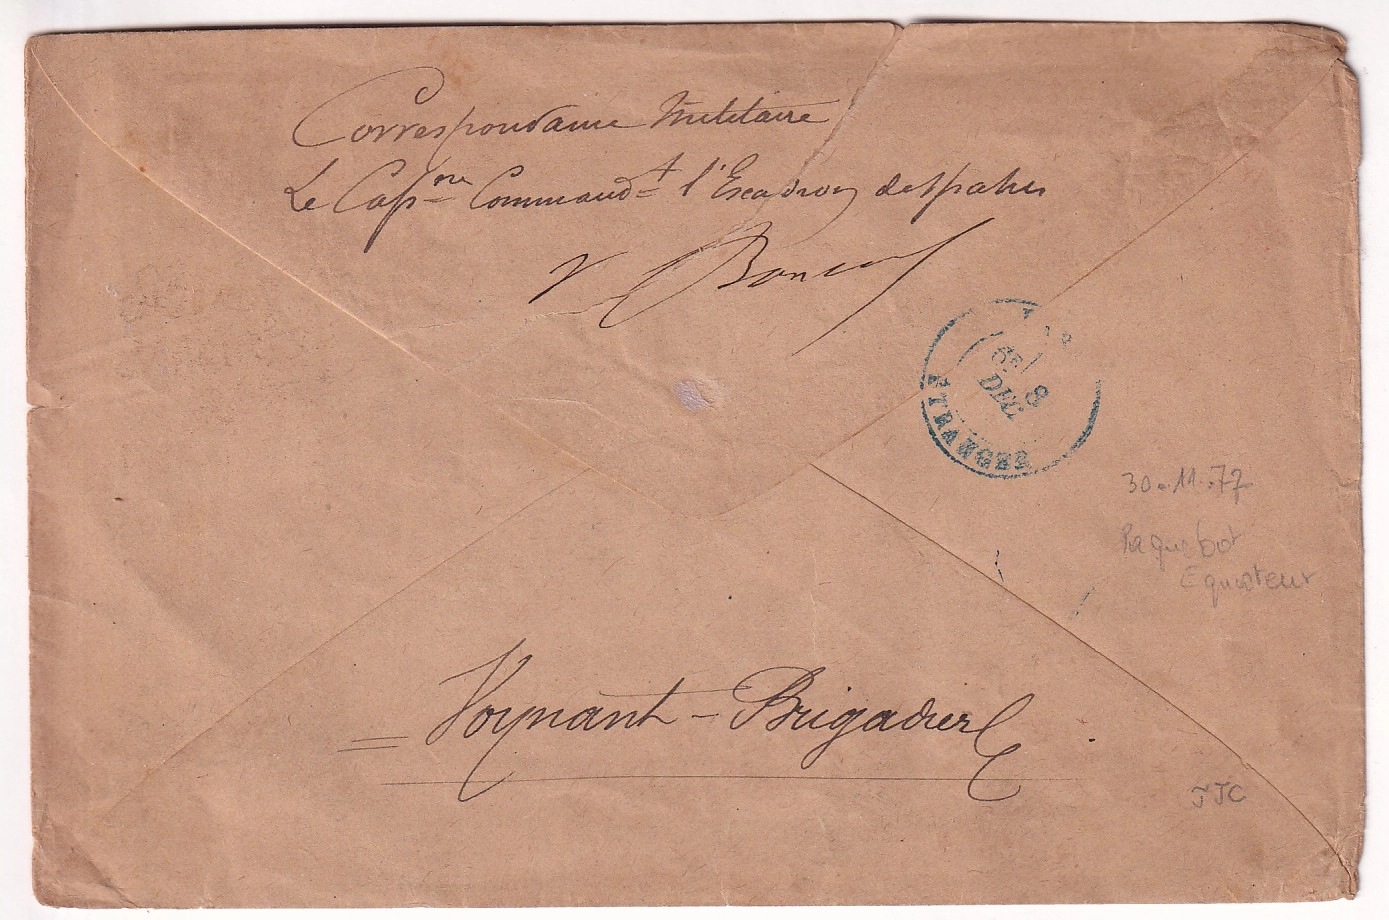 Correspondance Militaire
Le Cap^ne Command^t l'Escadron de Spahis
6E/ 8
DEC.
ETRANGER
30-11-77
Paquebot
Equateur
= Voynant - Brigadier
JJC